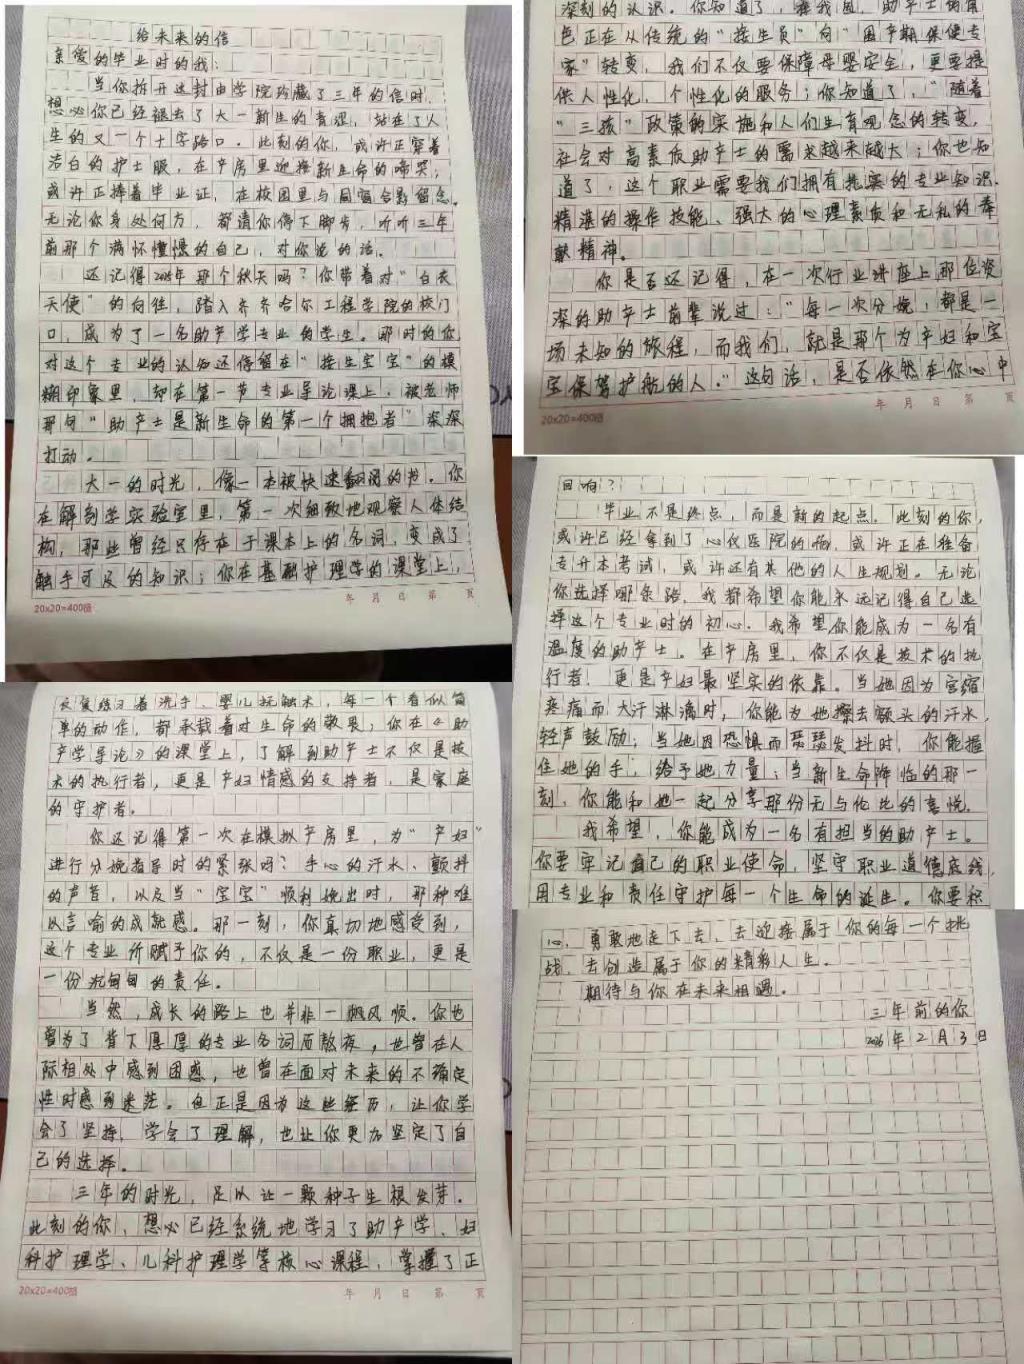 给未来的信
亲爱的毕业时的我：
当你拆开这封由学院珍藏了三年的信时，
想必你已经褪去了大一新生的青涩，站在了人
生的又一个十字路口。此刻的你，或许正穿着
洁白的护士服，在产房里迎接新生命的啼哭；
或许正捧着毕业证，在校园里与同窗合影留念。
无论你身处何方，都请你停下脚步，听听三年
前那个满怀憧憬的自己，对你说的话。
还记得2025年那个秋天吗？你带着对“白衣
天使”的向往，踏入齐齐哈尔工程学院的校门
口，成为了一名助产学专业的学生。那时的你
对这个专业的认知还停留在“接生宝宝”的模
糊印象里，却在第一节专业导论课上，被老师
那句“助产士是新生命的第一个拥抱者”深深
打动。
大一的时光，像一本被快速翻阅的书。你
在解剖学实验室里，第一次细致地观察人体结
构，那些曾经只存在于课本上的名词，变成了
触手可及的知识；你在基础护理学的课堂上，
20x20=400格 年 月 日 第 页
反复练习着洗手、婴儿抚触术，每一个看似简
单的动作，都承载着对生命的敬畏；你在《助
产学导论》的课堂上，了解到助产士不仅是技
术的执行者，更是产妇情感的支持者，是家庭
的守护者。
你还记得第一次在模拟产房里，为“产妇”
进行分娩指导时的紧张吗？手心的汗水、颤抖
的声音，以及当“宝宝”顺利娩出时，那种难
以言喻的成就感。那一刻，你真切地感受到，
这个专业所赋予你的，不仅是一份职业，更是
一份沉甸甸的责任。
当然，成长的路上也并非一帆风顺。你也
曾为了背下厚厚的专业名词而熬夜，也曾在人
际相处中感到困惑，也曾在面对未来的不确定
性时感到迷茫。但正是因为这些经历，让你学
会了坚持，学会了理解，也让你更加坚定了自
己的选择。
三年的时光，足以让一颗种子生根发芽。
此刻的你，想必已经系统地学习了助产学、妇
科护理学、儿科护理学等核心课程，掌握了正
20x20=400格 年 月 日 第 页
深刻的认识。你知道了，在我国，助产士的角
色正在从传统的“接生员”向“围产期保健专
家”转变，我们不仅要保障母婴安全，更要提
供人性化、个性化的服务；你知道了，“随着
“三孩”政策的实施和人们生育观念的转变，
社会对高素质助产士的需求越来越大；你也知
道了，这个职业需要我们拥有扎实的专业知识、
精湛的操作技能、强大的心理素质和无私的奉
献精神。
你是否还记得，在一次行业讲座上那位资
深的助产士前辈说过：“每一次分娩，都是一
场未知的旅程，而我们，就是那个为产妇和宝
宝保驾护航的人。”这句话，是否依然在你心中
20x20=400格 年 月 日 第 页
回响？
毕业不是终点，而是新的起点。此刻的你，
或许已经拿到了心仪医院的offer，或许正在准备
专升本考试，或许还有其他的人生规划。无论
你选择哪条路，我都希望你能永远记得自己选
择这个专业时的初心。我希望你能成为一名有
温度的助产士。在产房里，你不仅是技术的执
行者，更是产妇最坚实的依靠。当她因为宫缩
疼痛而大汗淋漓时，你能为她擦去额头的汗水，
轻声鼓励；当她因恐惧而瑟瑟发抖时，你能握
住她的手，给予她力量；当新生命降临的那一
刻，你能和她一起分享那份无与伦比的喜悦。
我希望，你能成为一名有担当的助产士。
你要牢记自己的职业使命，坚守职业道德底线，
用专业和责任守护每一个生命的诞生。你要积
心，勇敢地走下去，去迎接属于你的每一个挑
战，去创造属于你的精彩人生。
期待与你在未来相遇。
三年前的你
2026年2月3日